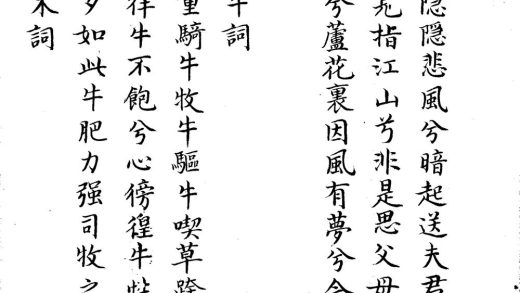 隱隱悲風兮暗起送夫君
指江山兮非是思父母
兮蘆花裏因風有夢兮
牛詞
童騎牛牧牛驅牛喫草跨
徉牛不飽兮心傍徨牛
如此牛肥力强司牧之
詞